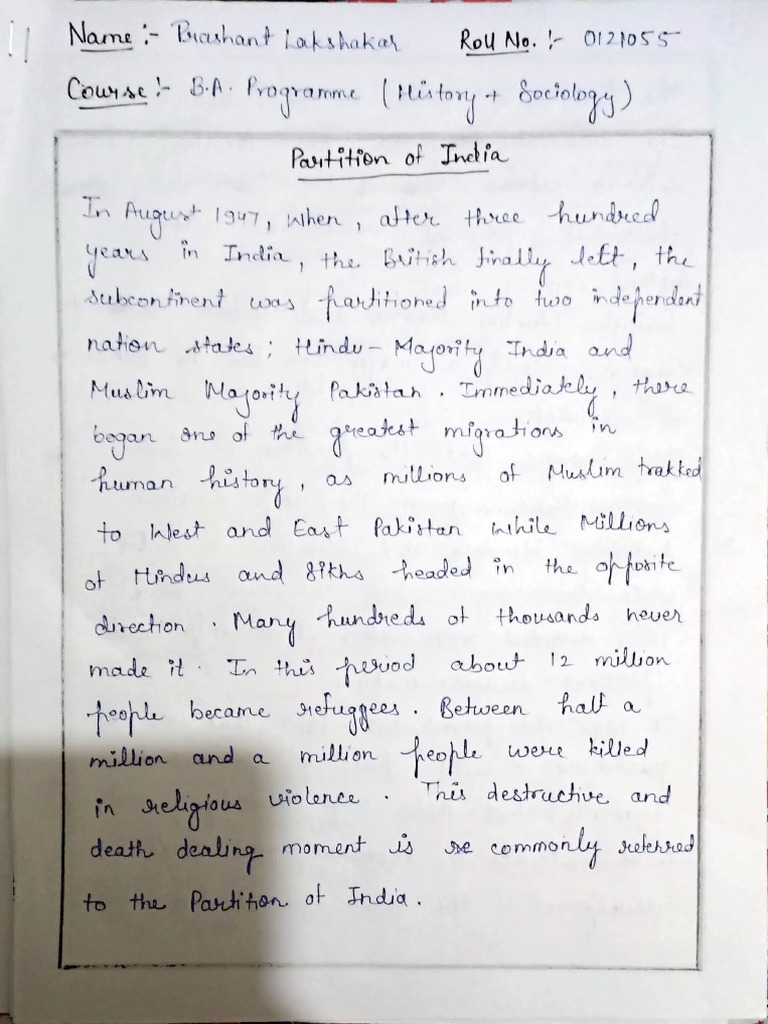 Name :- Prashant Lakshakar Roll No. :- 0121055
Course :- B.A. Programme (History + Sociology)
Partition of India
In August 1947, when, after three hundred
years in India, the British finally left, the
subcontinent was partitioned into two independent
nation states; Hindu-Majority India and
Muslim Majority Pakistan. Immediately, there
began one of the greatest migrations in
human history, as millions of Muslim trakked
to West and East Pakistan while Millions
of Hindus and Sikhs headed in the opposite
direction. Many hundreds of thousands never
made it. In this period about 12 million
people became refuggees. Between half a
million and a million people were killed
in religious violence. This destructive and
death dealing moment is commonly referred
to the Partition of India.